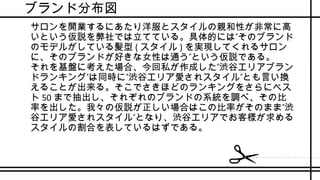 ブランド分布図
サロンを開業するにあたり洋服とスタイルの親和性が非常に高
いという仮説を弊社では立てている。具体的には‘そのブランド
のモデルがしている髪型(スタイル)を実現してくれるサロン
に、そのブランドが好きな女性は通う’という仮説である。
それを基盤に考えた場合、今回私が作成した‘渋谷エリアブラン
ドランキング’は同時に‘渋谷エリア愛されスタイル’とも言い換
えることが出来る。そこでさきほどのランキングをさらにベス
ト 50 まで抽出し、それぞれのブランドの系統を調べ、その比
率を出した。我々の仮説が正しい場合はこの比率がそのまま‘渋
谷エリア愛されスタイル’となり、渋谷エリアでお客様が求める
スタイルの割合を表しているはずである。